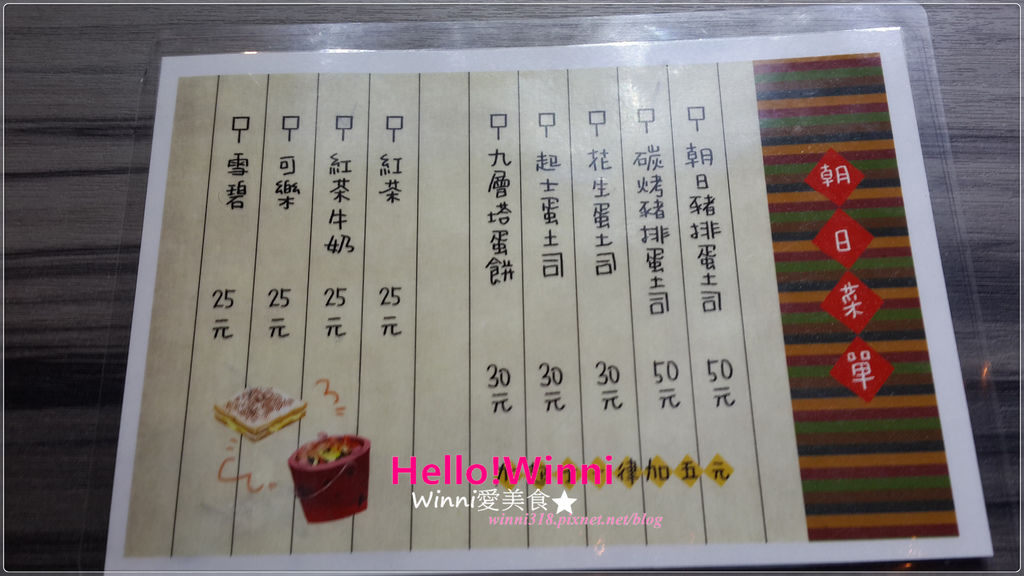 朝日菜單
朝日豬排蛋土司 50元
碳烤豬排蛋土司 50元
花生蛋土司 30元
起士蛋土司 30元
九層塔蛋餅 30元
紅茶 25元
紅茶牛奶 25元
可樂 25元
雪碧 25元
律加五元
Hello!Winni
Winni愛美食★
winni318.pixnet.net/blog